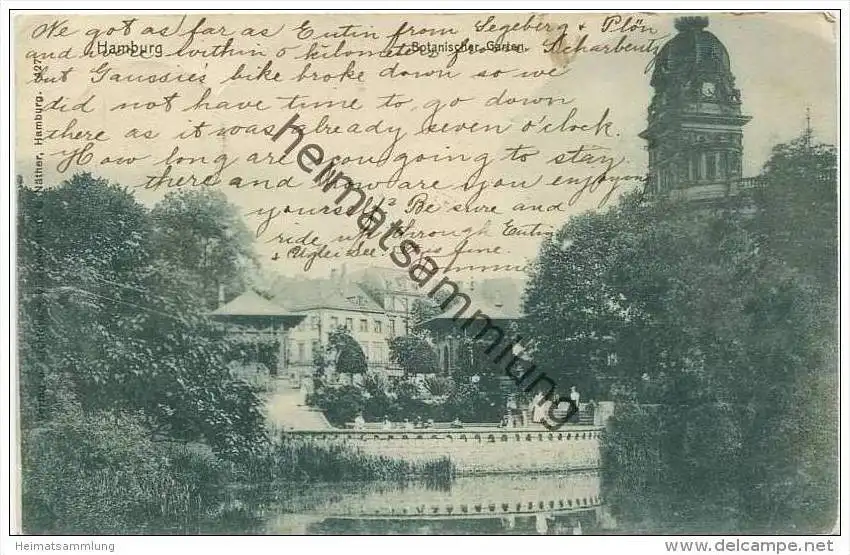 We got as far as Eutin from Segeberg & Plön
Hamburg
Botanischer Garten
and were within 8 kilometers from Scharbeutz
but Gaussie's bike broke down so we
did not have time to go down
there as it was already seven o'clock.
How long are you going to stay
there and how are you enjoying
yourself? Be sure and
ride up through Eutin
& Uglei See. It is fine.
heimatsammlung
Näther, Hamburg. 227
Heimatsammlung.com
http://heimatsammlung.delcampe.net